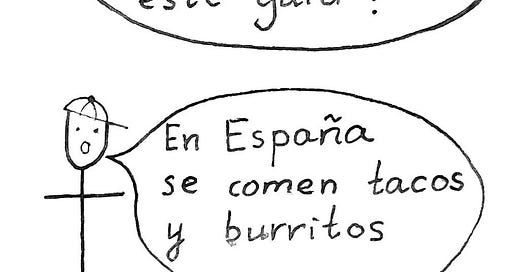 este
En España
se comen tacos
y burritos